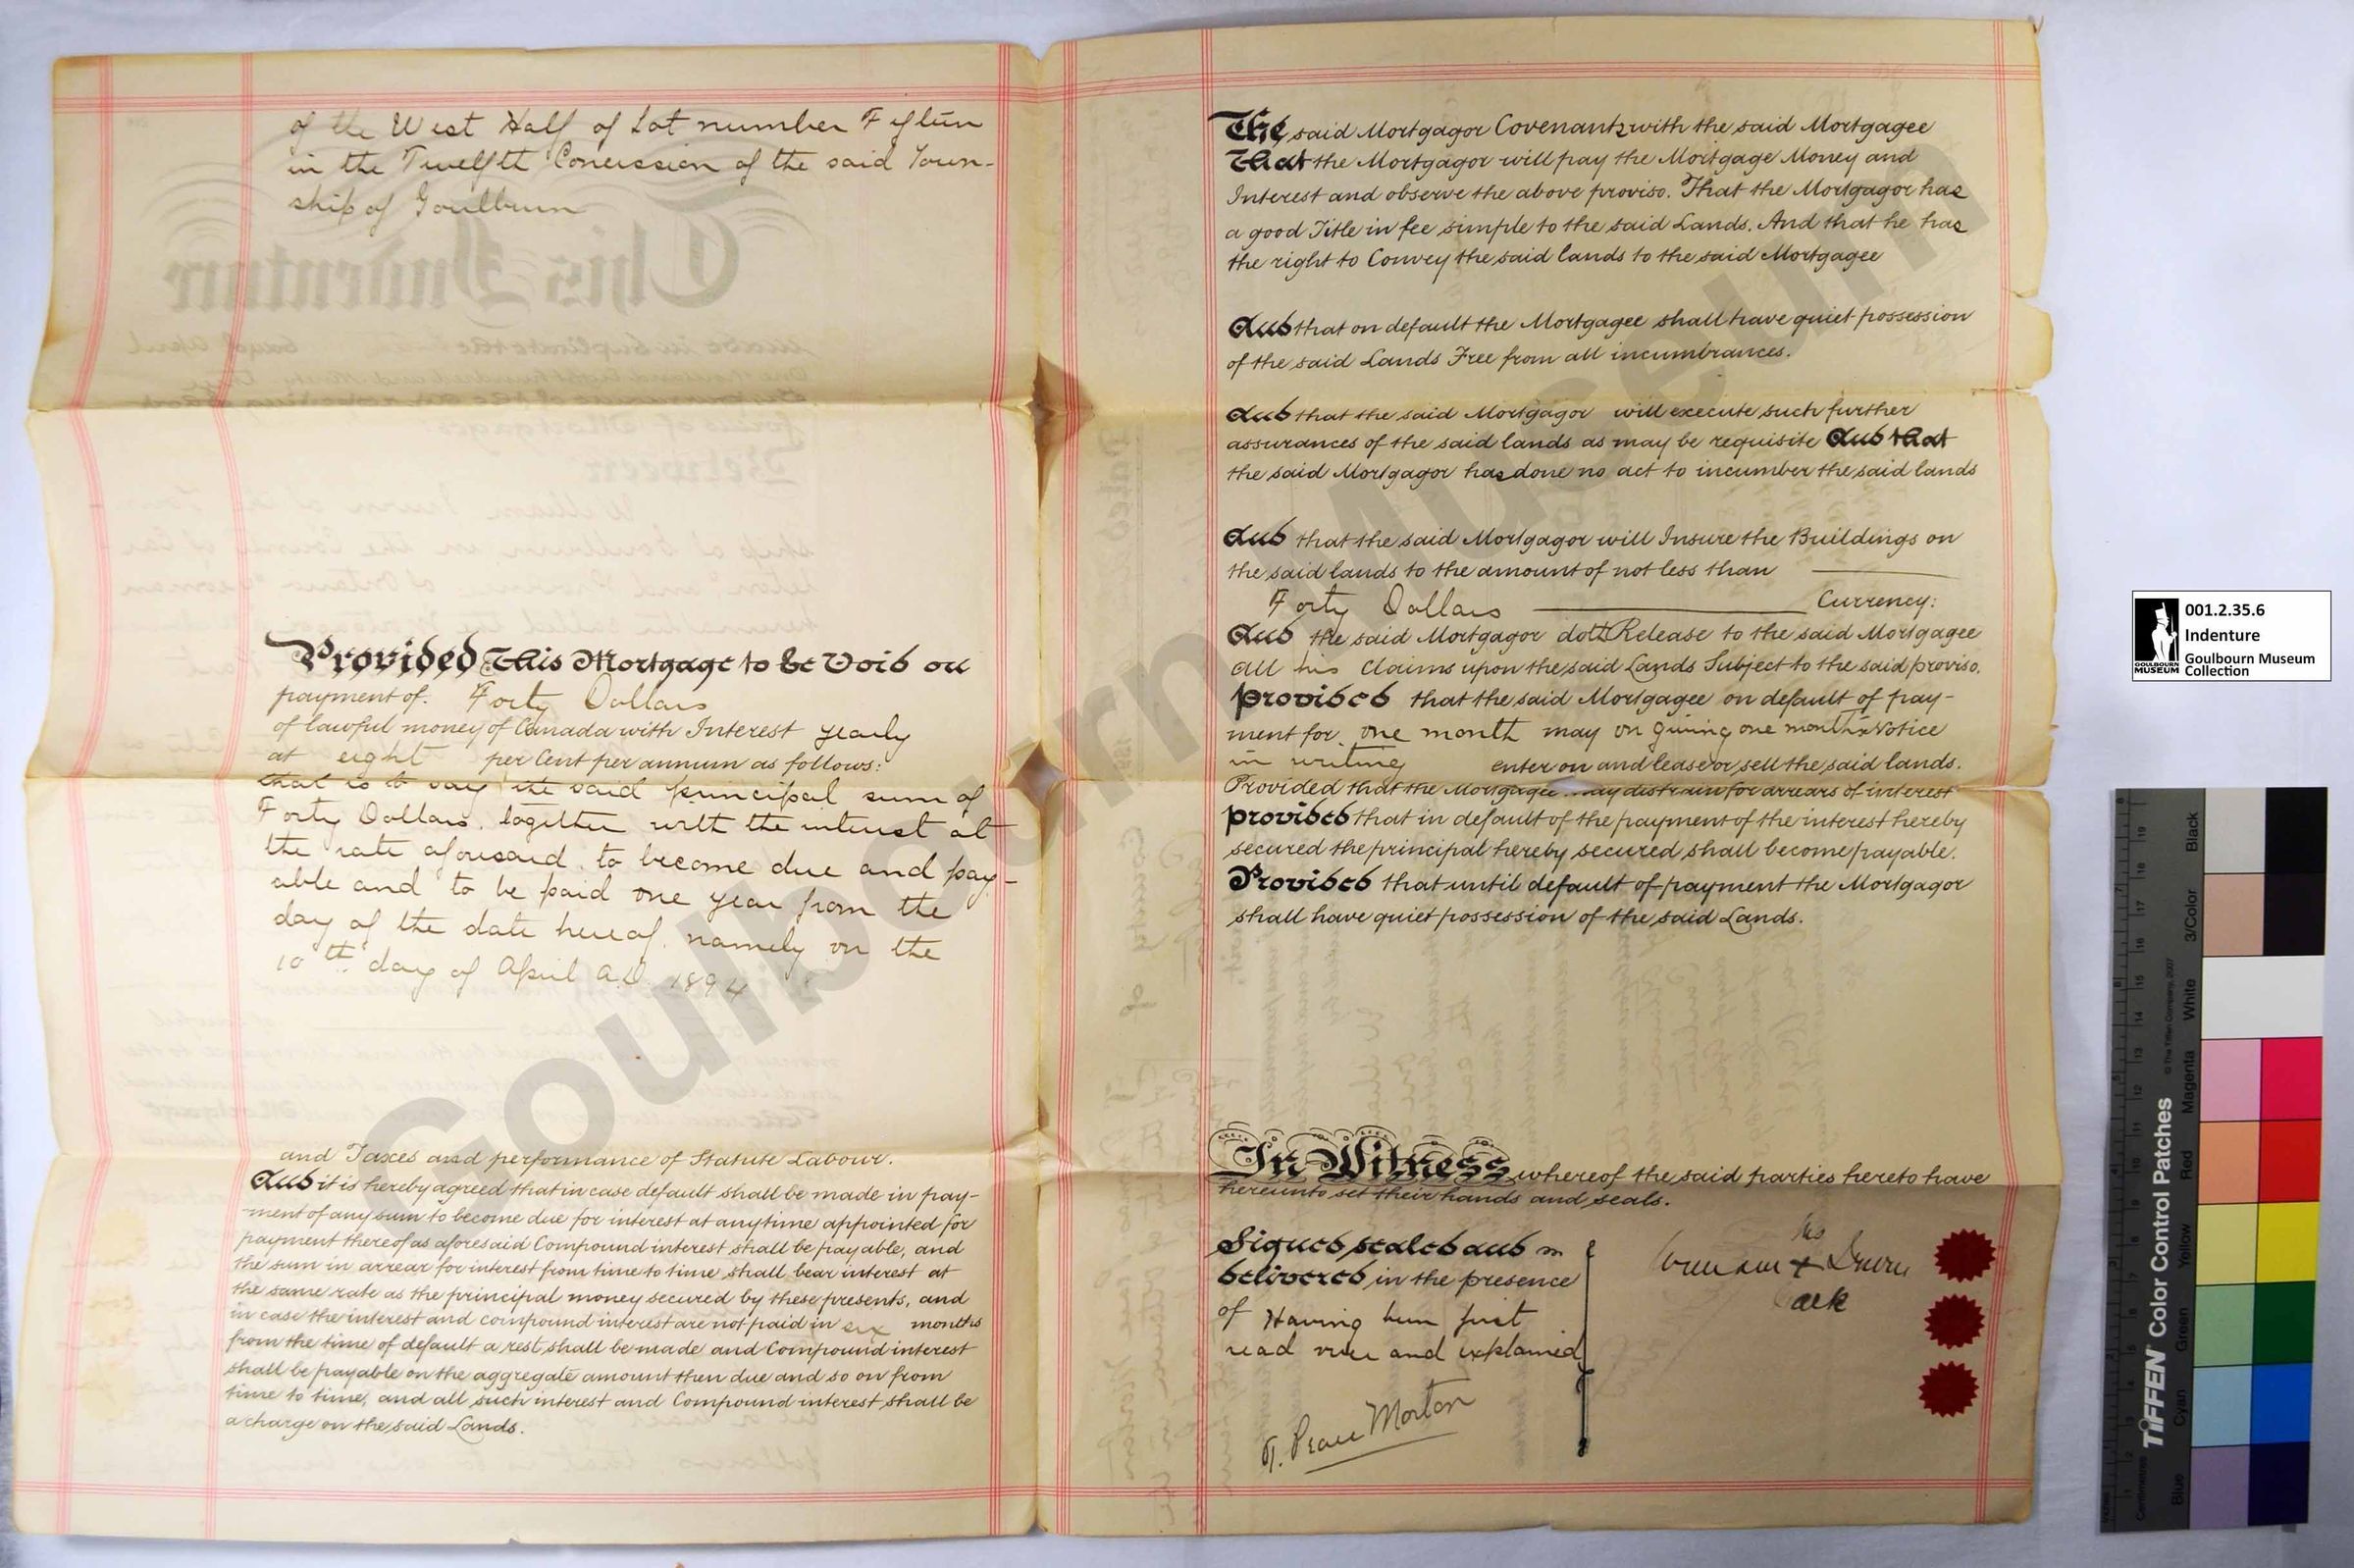 of the West Half of Lot number Fifteen
in the Twelfth Concession of the said Town-
ship of Goulburn
This Indenture
Provided This Mortgage to be Void on
payment of Forty Dollars
of lawful money of Canada with Interest yearly
at eight per Cent per annum as follows:
that is to say the said principal sum of
Forty Dollars together with the interest at
the rate aforesaid to become due and pay-
able and to be paid one year from the
day of the date hereof, namely on the
10th day of April A.D. 1894
and Taxes and performance of Statute Labour.
And it is hereby agreed that in case default shall be made in pay-
-ment of any sum to become due for interest at any time appointed for
payment thereof as aforesaid Compound interest shall be payable, and
the sum in arrear for interest from time to time shall bear interest at
the same rate as the principal money secured by these presents, and
in case the interest and compound interest are not paid in six months
from the time of default a rest shall be made and Compound interest
shall be payable on the aggregate amount then due and so on from
time to time, and all such interest and Compound interest shall be
a charge on the said Lands.
The said Mortgagor Covenants with the said Mortgagee
That the Mortgagor will pay the Mortgage Money and
Interest and observe the above proviso. That the Mortgagor has
a good Title in fee simple to the said Lands. And that he has
the right to Convey the said lands to the said Mortgagee
And that on default the Mortgagee shall have quiet possession
of the said Lands Free from all incumbrances.
And that the said Mortgagor will execute such further
assurances of the said lands as may be requisite And that
the said Mortgagor has done no act to incumber the said lands
And that the said Mortgagor will Insure the Buildings on
the said lands to the amount of not less than
Forty Dollars Currency:
And the said Mortgagor doth Release to the said Mortgagee
all his Claims upon the said Lands Subject to the said proviso.
Provided that the said Mortgagee on default of pay-
ment for one month may on giving one month's Notice
in writing enter on and lease or sell the said lands.
Provided that the Mortgagee may distrain for arrears of interest
Provided that in default of the payment of the interest hereby
secured the principal hereby secured shall become payable.
Provided that until default of payment the Mortgagor
shall have quiet possession of the said Lands.
In Witness whereof the said parties hereto have
hereunto set their hands and seals.
Signed, sealed and
delivered in the presence
of Having been first
read over and explained
T. Morton
his
William X
Goulbourn Museum
001.2.35.6
Indenture
Goulbourn Museum
Collection
GOULBOURN
MUSEUM
TIFFEN Color Control Patches
© The Tiffen Company, 2007
Centimetres
Blue Cyan Green Yellow Red Magenta White 3/Color Black